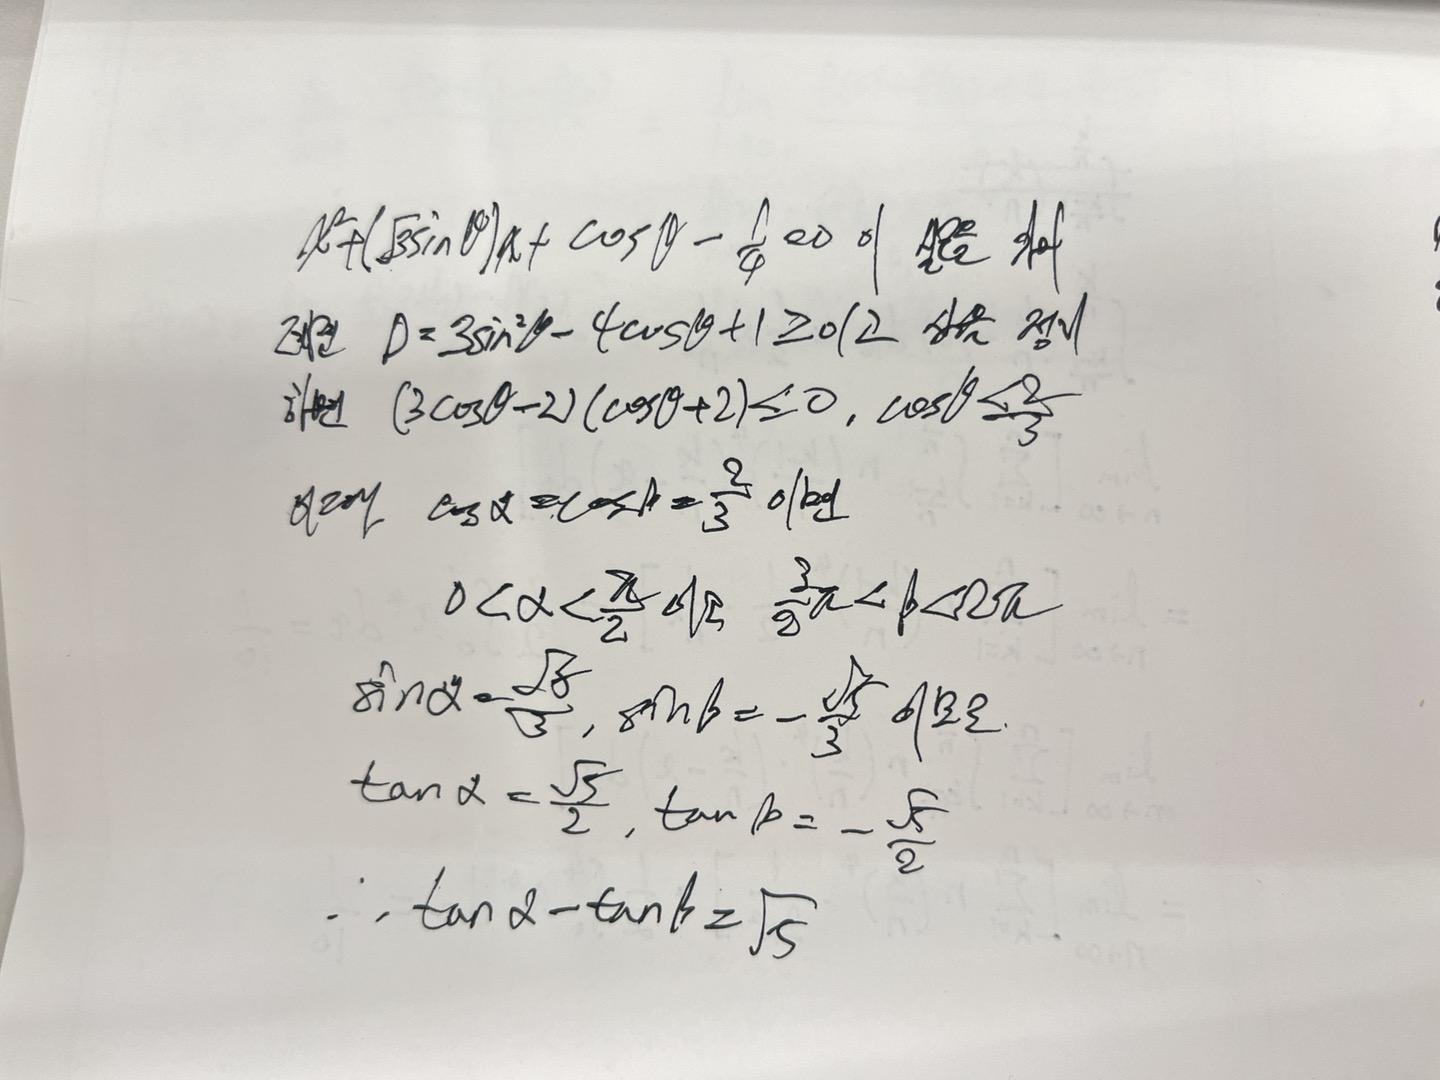 x²+(√3sinθ)x+cosθ-1/4=0이 실근을 가
지려면 D=3sin²θ-4cosθ+1≥0이고 식을 정리
하면 (3cosθ-2)(cosθ+2)≤0, cosθ≤2/3
따라서 cosα=cosβ=2/3이면
0<α<π/2이고 3/2π<β<2π
sinα=√5/3, sinβ=-√5/3이므로.
tanα=√5/2, tanβ=-√5/2
∴ tanα-tanβ=√5